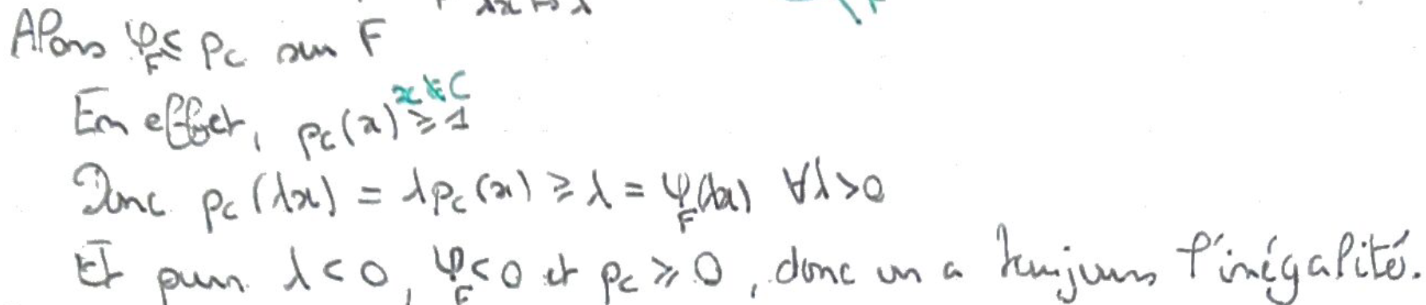 λx ↦ λ
Alors φ_F ≤ p_C sur F
En effet, p_C(x) ≥ 1 x ∉ C
Donc p_C(λx) = λp_C(x) ≥ λ = φ_F(λx) ∀λ>0
Et pour λ < 0, φ_F < 0 et p_C ≥ 0, donc on a toujours l'inégalité.